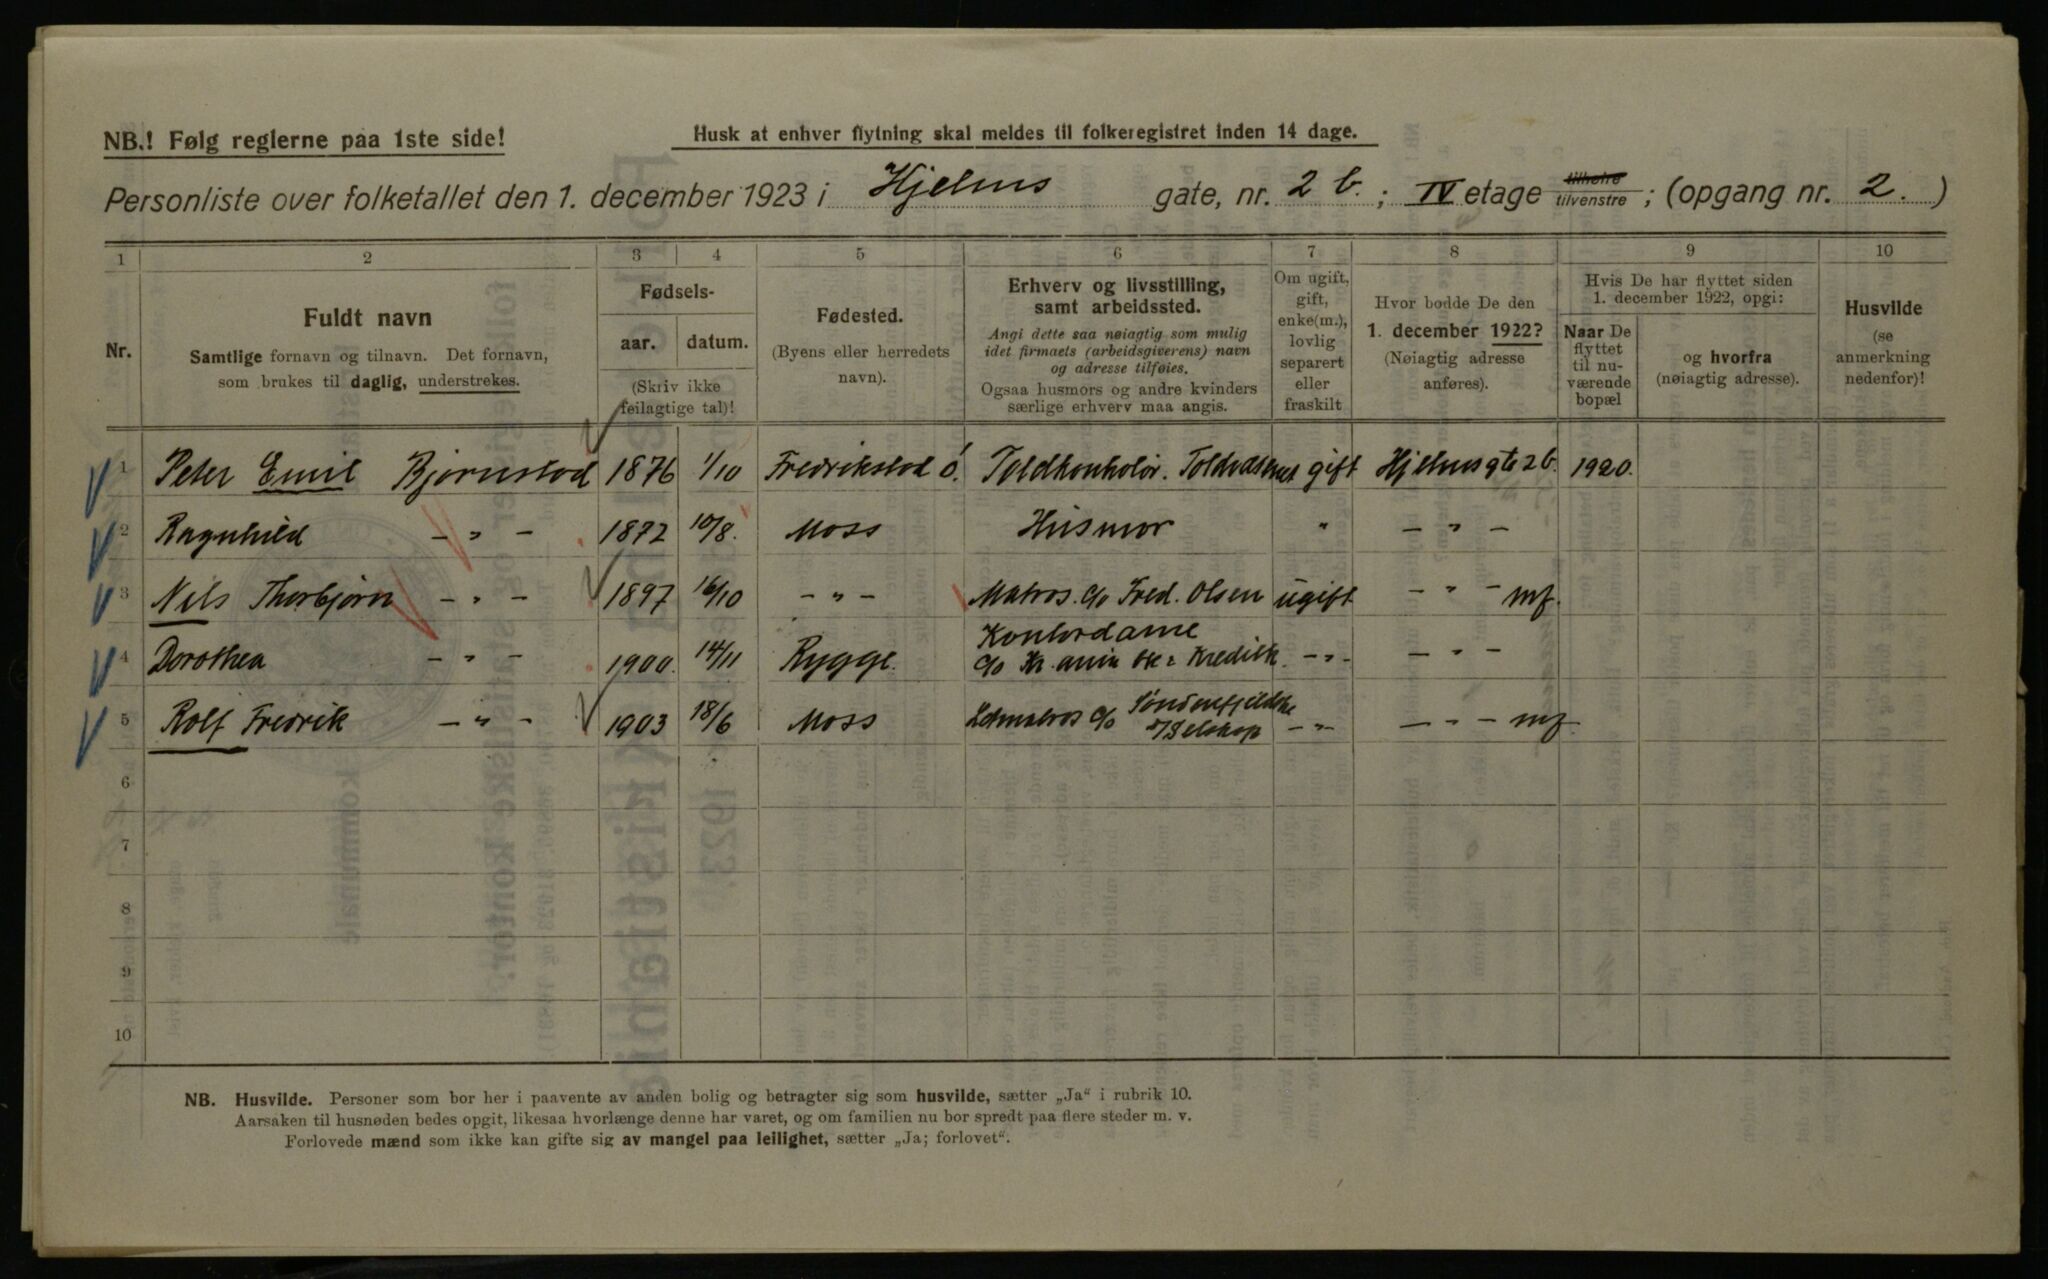 NB.! Følg reglerne paa 1ste side!
Husk at enhver flytning skal meldes til folkeregistret inden 14 dage.
Personliste over folketallet den 1. december 1923 i Hjelms gate, nr. 2 b. ; IV etage tilhøire tilvenstre ; (opgang nr. 2. )
1 2 3 4 5 6 7 8 9 10
Nr.
Fuldt navn
Samtlige fornavn og tilnavn. Det fornavn,
som brukes til daglig, understrekes.
Fødsels-
aar. datum.
(Skriv ikke
feilagtige tal)!
Fødested.
(Byens eller herredets
navn).
Erhverv og livsstilling,
samt arbeidssted.
Angi dette saa nøiagtig som mulig
idet firmaets (arbeidsgiverens) navn
og adresse tilføies.
Ogsaa husmors og andre kvinders
særlige erhverv maa angis.
Om ugift,
gift,
enke(m.),
lovlig
separert
eller
fraskilt
Hvor bodde De den
1. december 1922?
(Nøiagtig adresse
anføres).
Hvis De har flyttet siden
1. december 1922, opgi:
Naar De
flyttet
til nu-
værende
bopæl
og hvorfra
(nøiagtig adresse).
Husvilde
(se
anmerkning
nedenfor)!
1 Peter Emil Bjørnstad 1876 1/10 Fredrikstad ó. Toldkontolør. Toldvæsenet gift Hjelmsgt 2 b. 1920.
2 Ragnhild — " — 1872 10/8. Moss Husmor " — " —
3 Nils Thorbjørn — " — 1897 16/10 — " — Matros. c/o Fred. Olsen ugift — " — mf.
4 Dorothea — " — 1900. 14/11 Rygge. Kontordame
c/o Kr.ania Kreditk. — " — — " —
5 Rolf Fredrik — " — 1903 18/6 Moss c/o Søndenfjeldske
D/Selskap — " — — " — mf.
6
7
8
9
10
NB. Husvilde. Personer som bor her i paavente av anden bolig og betragter sig som husvilde, sætter „Ja“ i rubrik 10.
Aarsaken til husnøden bedes opgit, likesaa hvorlænge denne har varet, og om familien nu bor spredt paa flere steder m. v.
Forlovede mænd som ikke kan gifte sig av mangel paa leilighet, sætter „Ja; forlovet“.